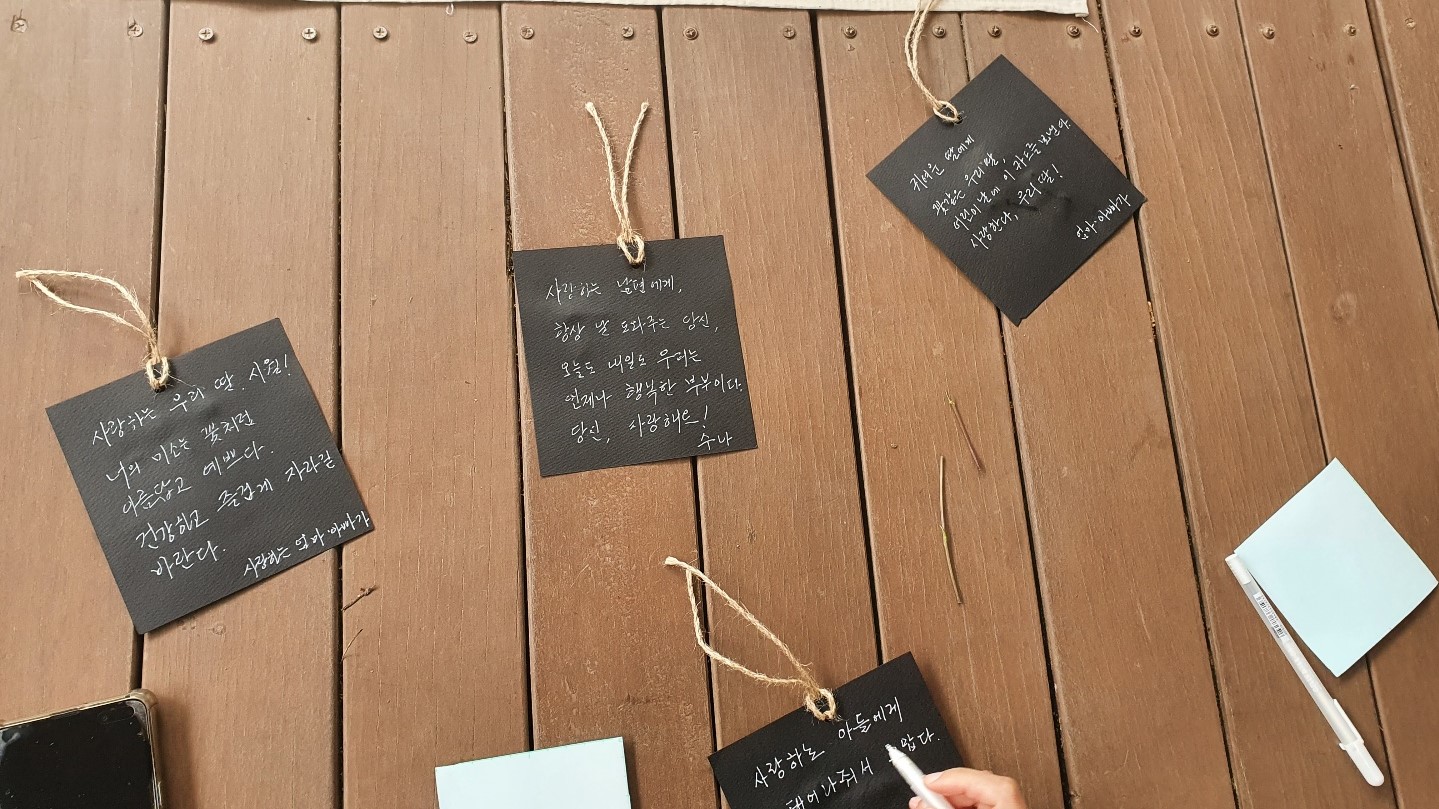 사랑하는 우리 딸. 시월!
너의 미소는 꽃처럼
아름답고 예쁘다.
건강하고 즐겁게 자라길
바란다.
사랑하는 엄마·아빠가
사랑하는 남편에게,
항상 날 도와주는 당신,
오늘도 내일도 우리는
언제나 행복한 부부이다.
당신, 사랑해요!
수나
귀여운 딸에게
꽃같은 우리 딸,
어린이 날에 이 카드를 보낸다.
사랑한다, 우리 딸!
엄마·아빠가
사랑하는 아들에게
태어나줘서